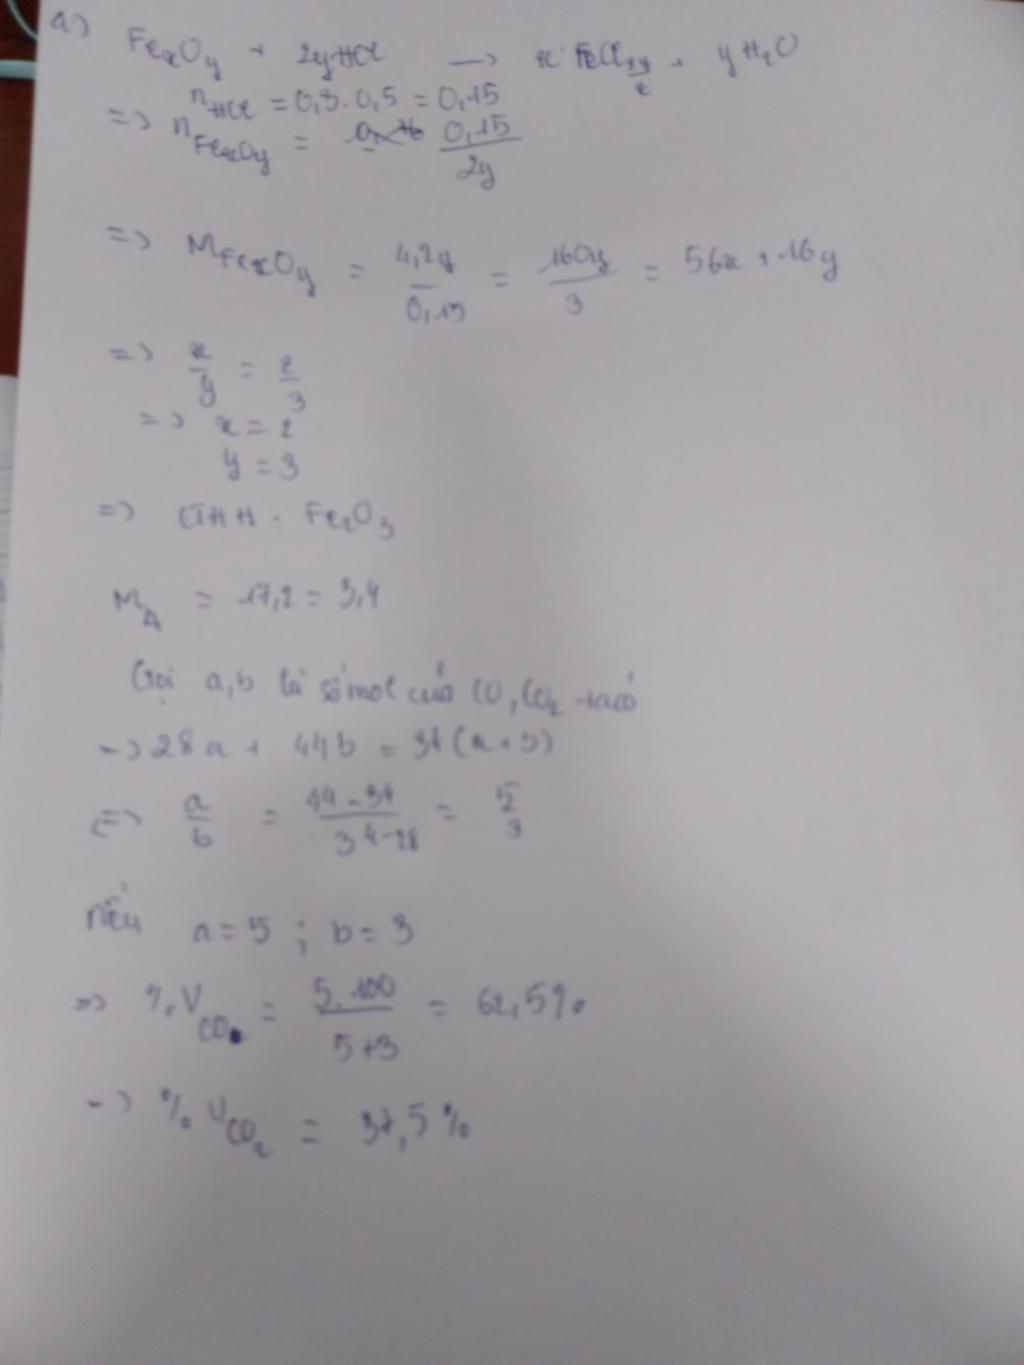 a)
FexOy + 2yHCl → x FeCl2y/x + yH2O
nHCl = 0,3.0,5 = 0,15
=> nFexOy = 0,15/2y
=> MFexOy = 4,2y/0,15 = 160y/3 = 56x + 16y
=> x/y = 2/3
=> x = 2
y = 3
=> CTHH : Fe2O3
MA = 17,2 = 3,4
Gọi a,b là số mol của CO, CO2 ta có
-> 28a + 44b = 34(a+b)
<=> a/b = 44-34/34-28 = 5/3
nếu a = 5 ; b = 3
=> %VCO = 5.100/5+3 = 62,5%
-> %VCO2 = 37,5%